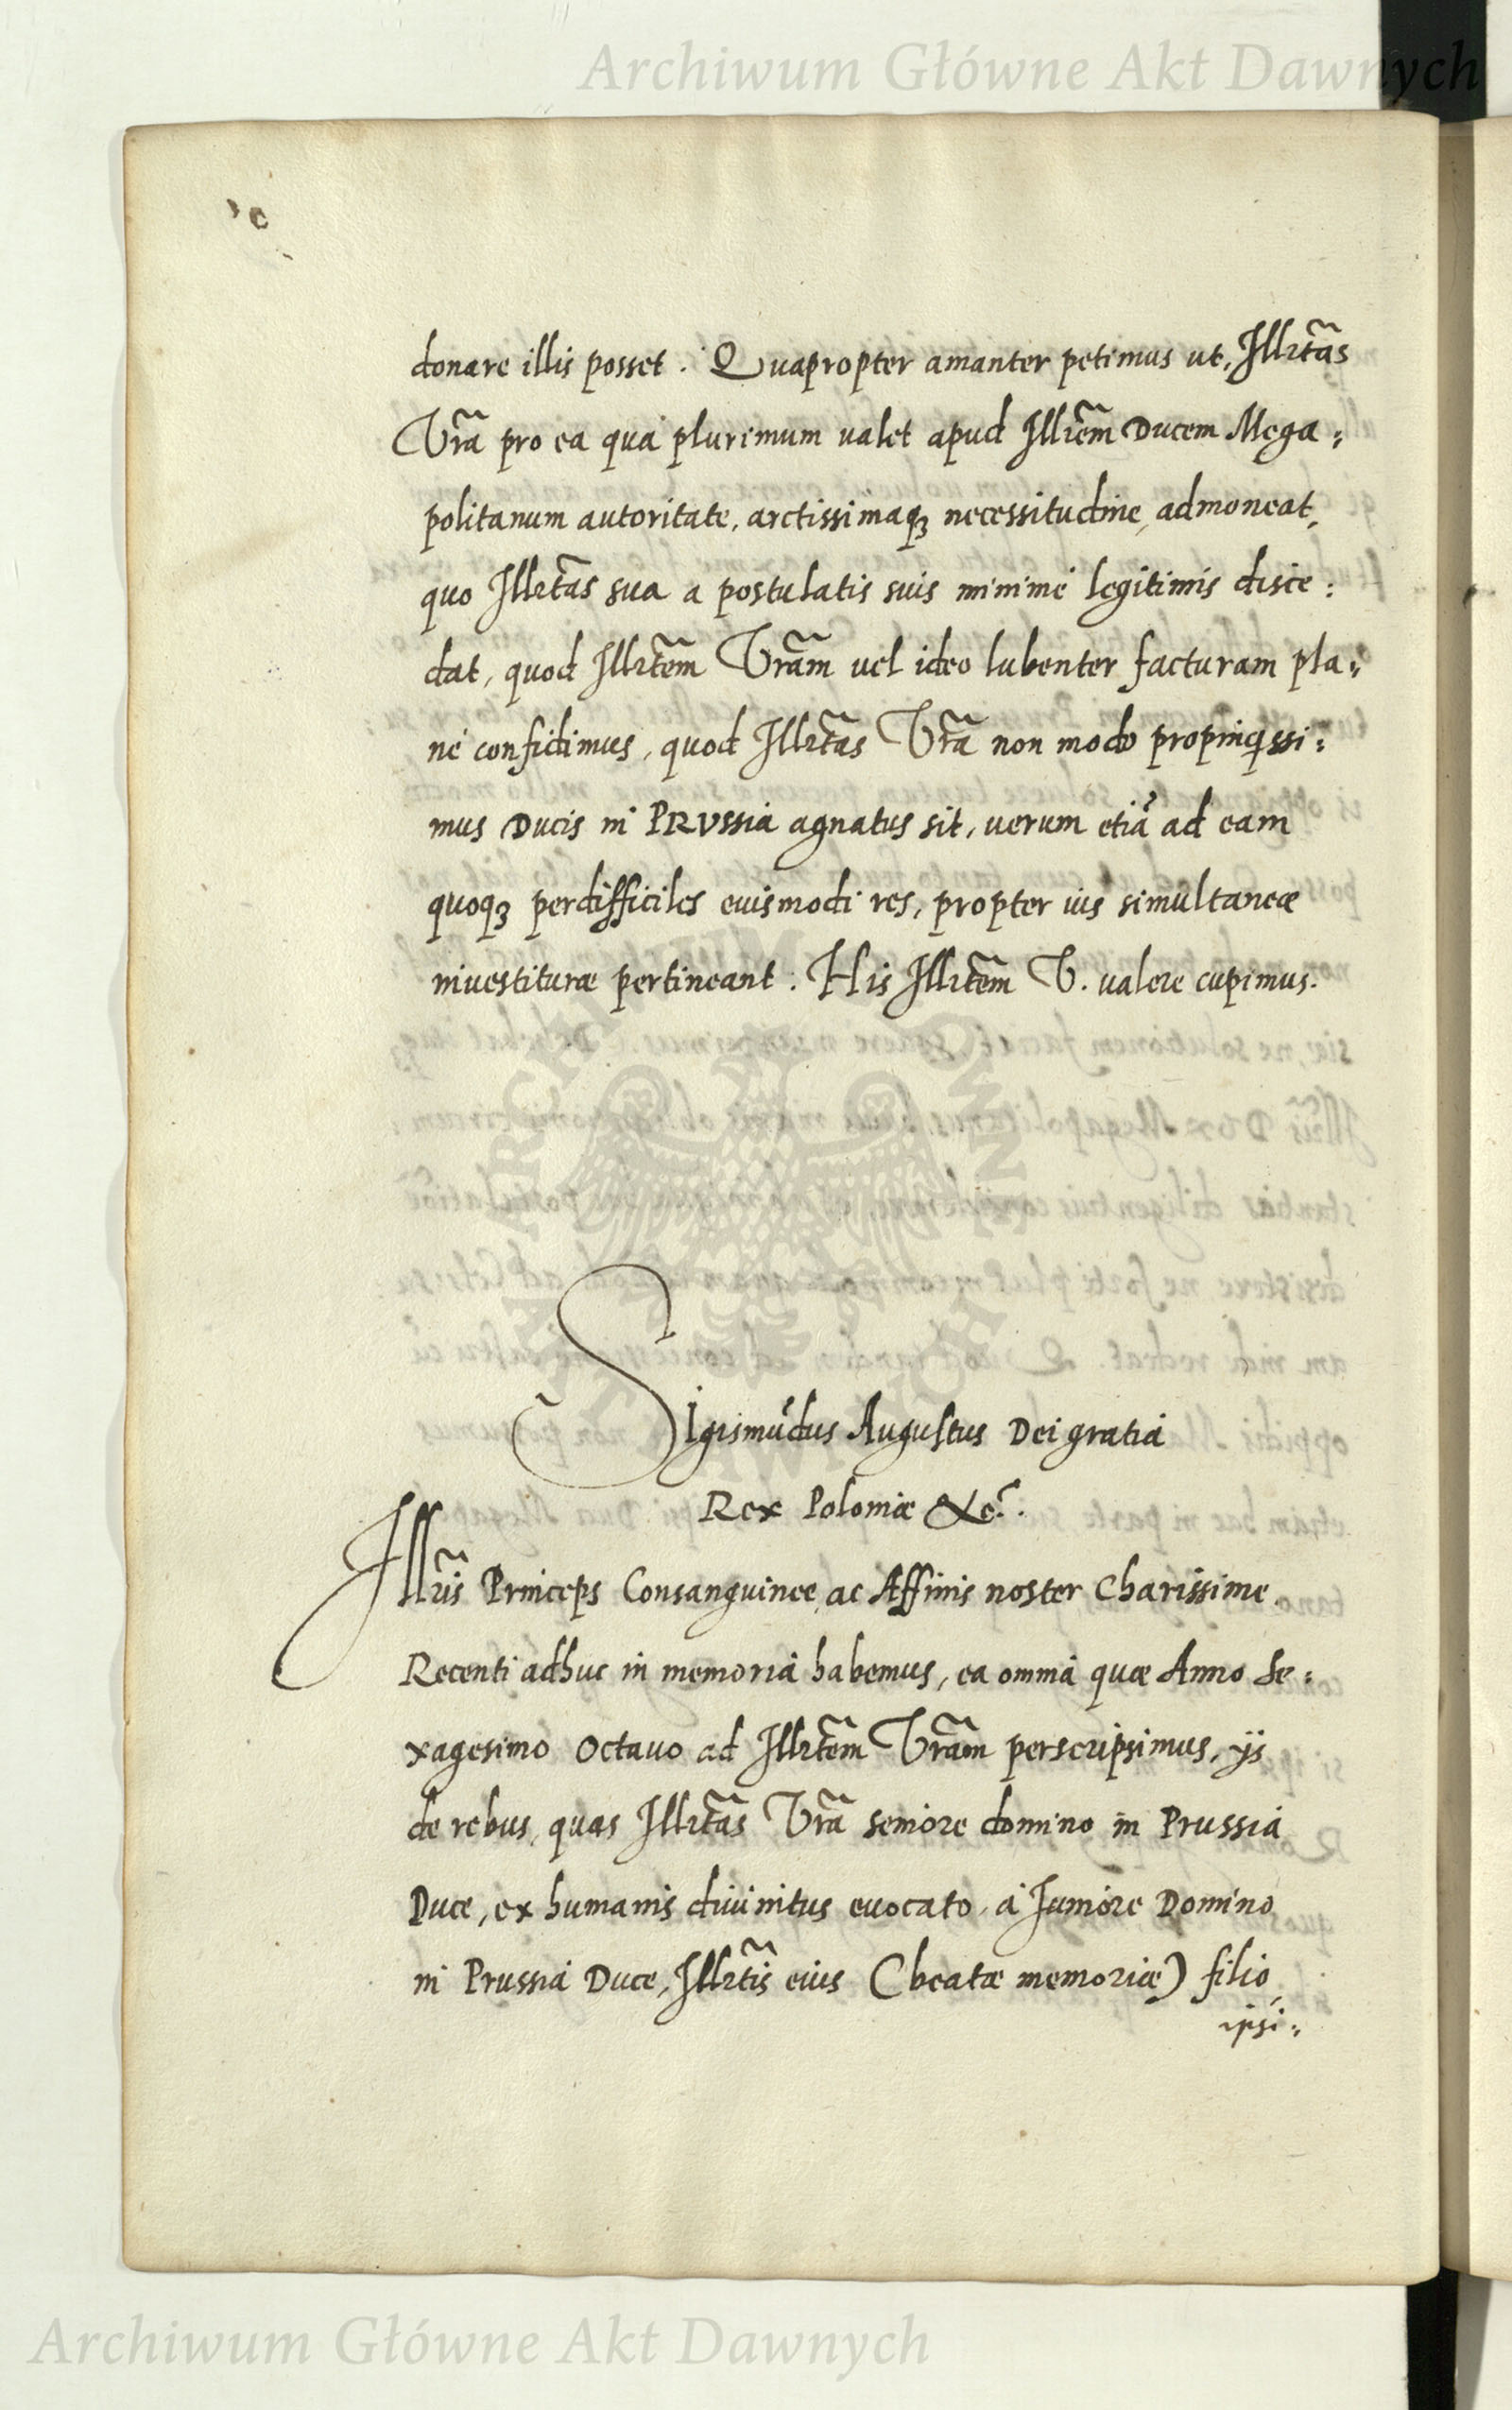 Archiwum Główne Akt Dawnych
donare illis posset. Quapropter amanter petimus ut, Illrt̃as
Vr̃a pro ea qua plurimum ualet apud Illrẽm Ducem Mega:
politanum autoritate, arctissimaqꝫ necessitudine, admoneat,
quo Illrt̃as sua a postulatis suis minimè legitimis disce:
dat, quod Illrt̃em Vrãm uel ideo lubenter facturam pla:
nè confidimus, quod Illrt̃as Vr̃a non modo propinq̃ssi:
mus Ducis in PRVssia agnatus sit, uerum etiã ad eam
quoqꝫ perdifficiles euismodi res, propter ius simultaneæ
inuestituræ pertineant. His Illrt̃em V. ualere cupimus.
Sigismũdus Augustus Dei gratia
Rex Poloniæ &c̃.
Illr̃is Princeps Consanguinee ac Affinis noster Charissime.
Recenti adhuc in memoria habemus, ea omnia quæ Anno Se:
xagesimo Octauo ad Illrt̃em Vrãm perscripsimus, ijs
de rebus, quas Illrt̃as Vr̃a seniore domino in Prussia
Duce, ex humanis diuinitus euocato, à Juniore Domino
in Prussia Duce, Illrt̃is eius (beatæ memoriæ) filio,
ipsi:
Archiwum Główne Akt Dawnych